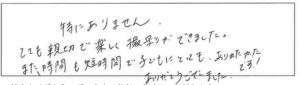 特にありません。
とても親切で楽しく撮影ができました。
また、時間も短時間で子どもにとっても、ありがたかったです!
ありがとうございました。